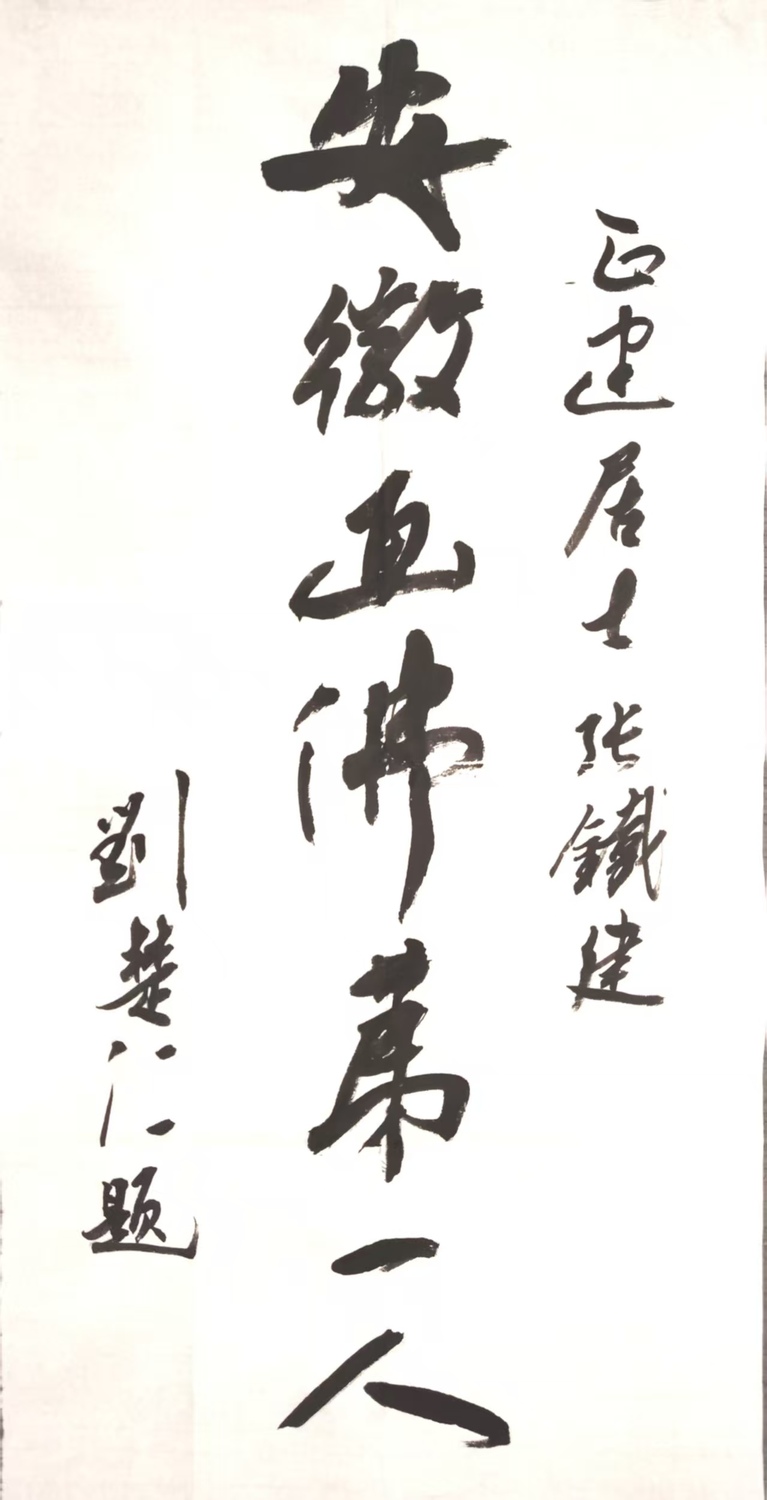 正建居士 张鐵建
安徽画佛第一人
劉楚仁题